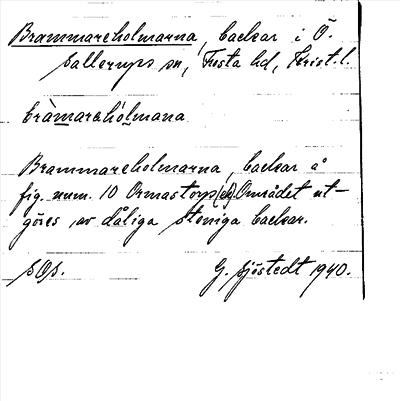 Brammareholmarna, backar i Ö.
Sallerups sn, Frosta hd, Krist. l.
bràmarehólmana
Brammareholmarna, backar å
fig. num. 10 Ormastorp(et). Området ut-
göres av dåliga steniga backar.
SOS.
G. Sjöstedt 1940.